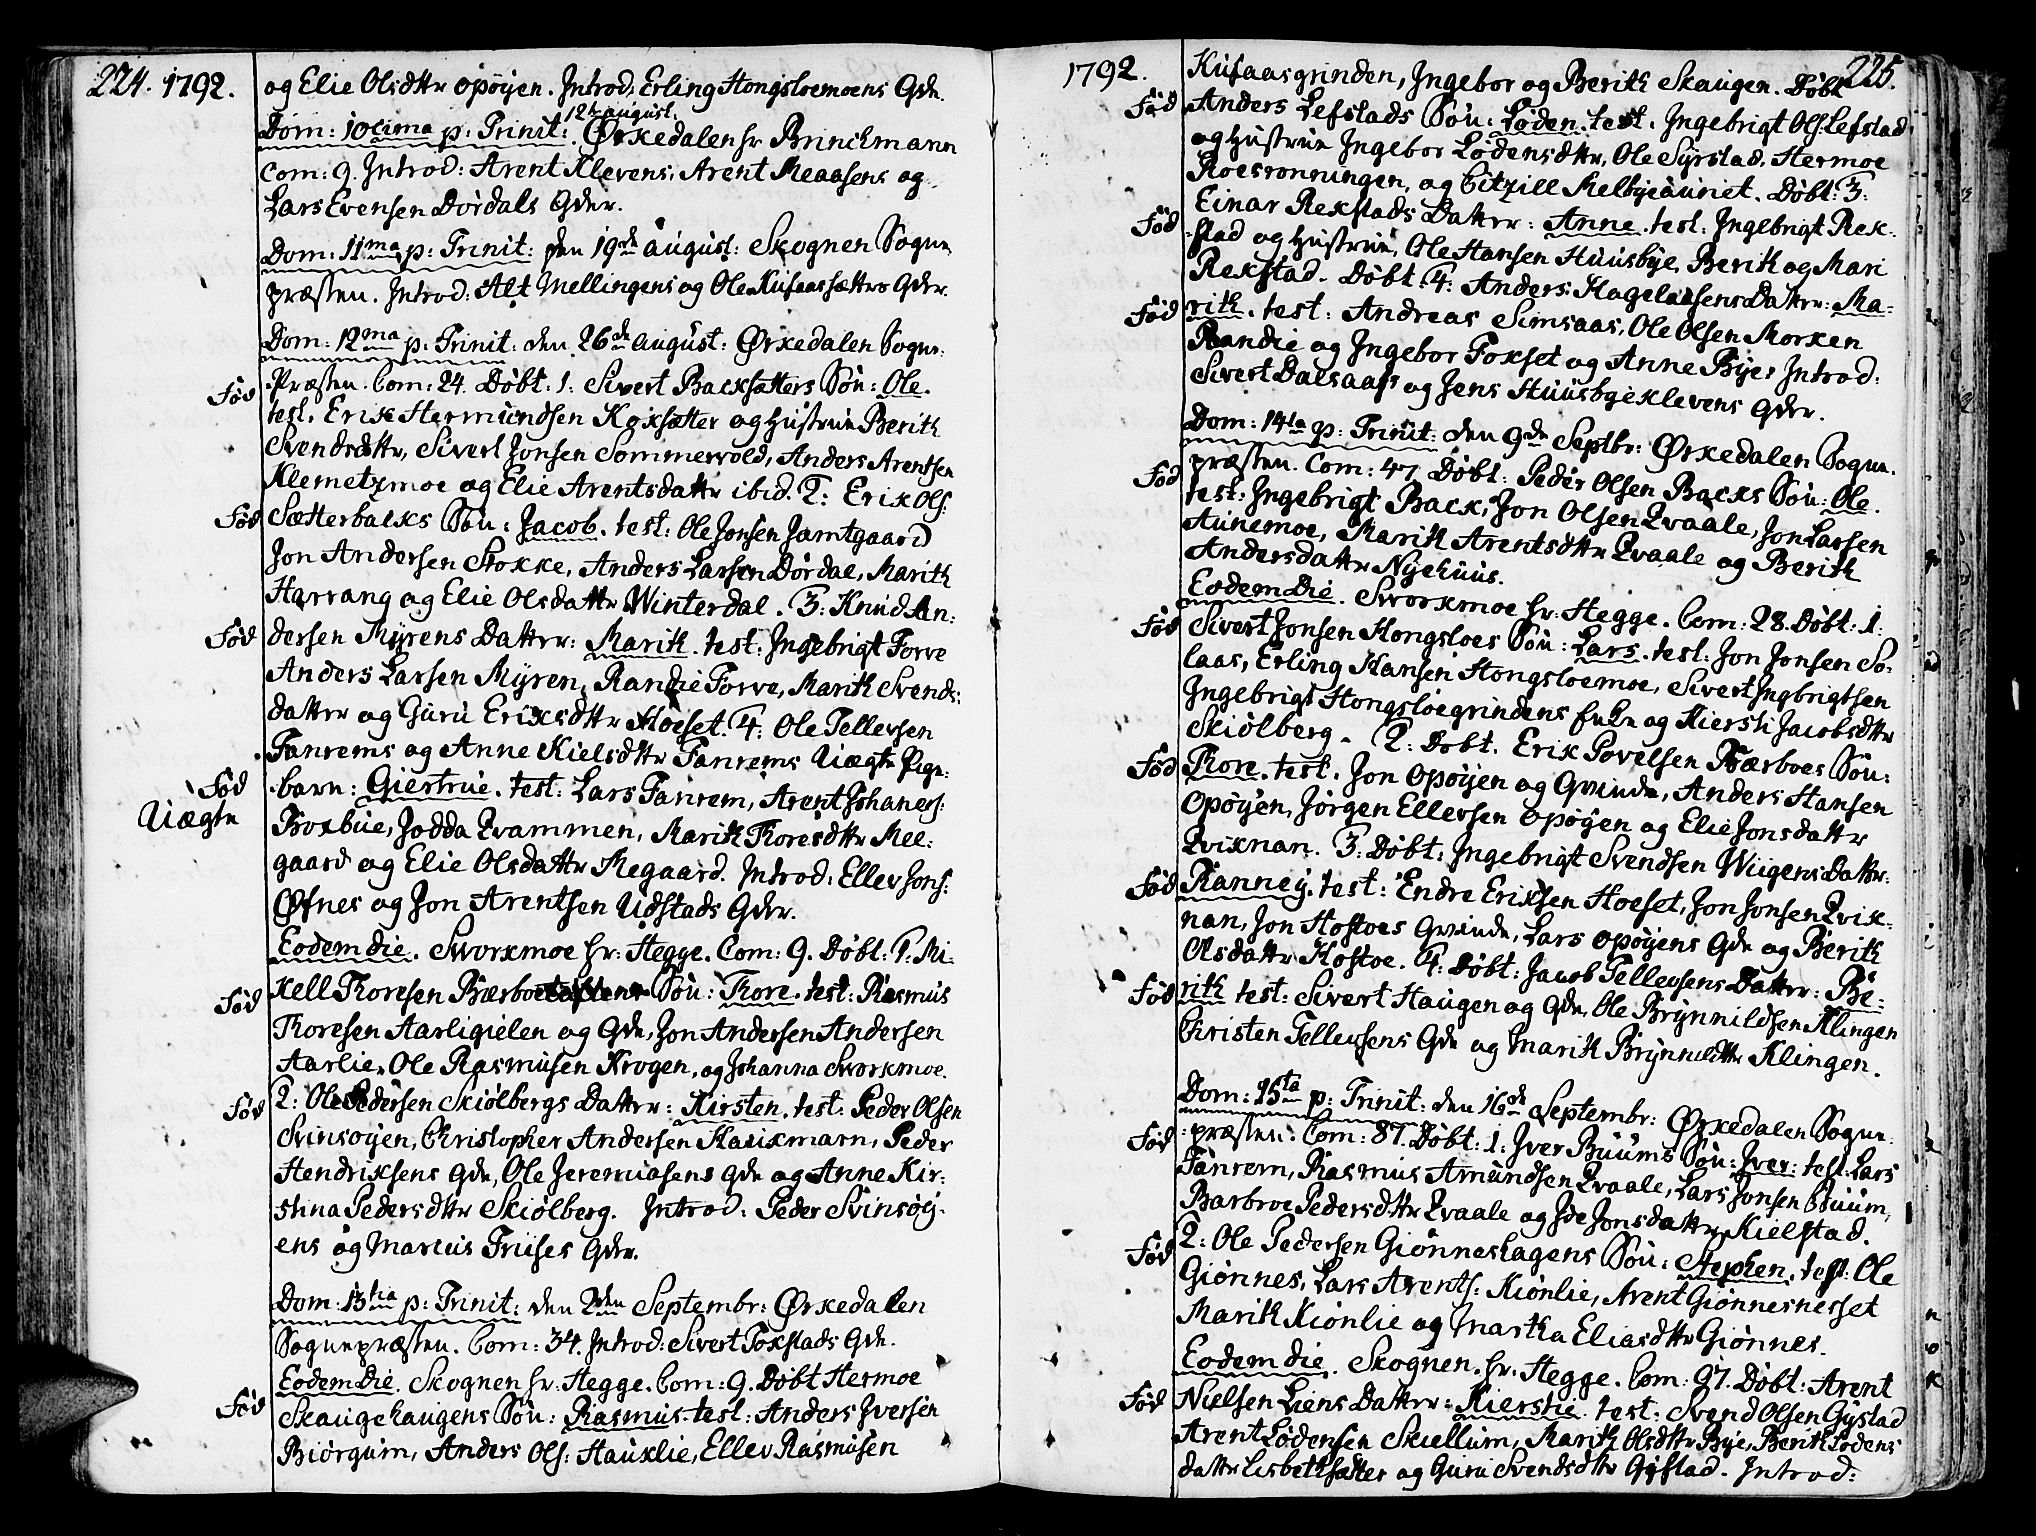 224. 1792.
og Elie Olsdttr Opøyen. Introd: Erling Hongsloemoens Qde.
12te august:
Dom: 10cima p: Trinit: Ørkedalen hr Brinchmann
Com: 9. Introd: Arent Klevens, Arent Meaasens og
Lars Evensen Dørdals Qder.
Dom: 11ma p: Trinit: den 19de august: Skognen Sogne
præsten. Introd: Alt Mellingens og Ole Kufaassætters Qder.
Dom: 12ma p: Trinit: den 26de august: Ørkedalen Sogne:
Fød Præsten. Com: 24. Døbt: 1: Sivert Backsætters Søn: Ole.
test. Erik Hermundsen Koksætter og Hustrue Berith
Svendsdttr, Sivert Jonsen Sommervold, Anders Arentsen
Klemetzmoe og Elie Arentsdattr ibid. 2: Erik Ols:
Fød Sætterbacks Søn: Jacob. test: Ole Jonsen Jamtgaard
Jon Andersen Stokke, Anders Larsen Dørdal, Marith
Harrang og Elie Olsdattr Winterdal. 3: Knud An:
Fød dersen Myrens Datter: Marith. test: Ingebrigt Forve
Anders Larsen Myren, Randie Forve, Marith Svends:
datter og Guru Eriksdttr Hoeset. 4: Ole Tellevsen
Fanrems og Anne Kielsdttr Fanrems Uægte Pige:
Fød Uægte barn: Giertrue. test: Lars Fanrem, Arent Johanes:
Boxbue, Jodda Qvammen, Marith Thoresdttr Mee:
gaard og Elie Olsdattr Megaard. Introd: Ellev Jons:
Øfnes og Jon Arentsen Udstads Qder.
Eodem die. Sworkmoe hr: Hegge. Com: 9. Døbt: 1. Mi:
Fød kell Thoresen Bærboe Søn: Thore. test: Rasmus
Thoresen Aarligielen og Qde, Jon Andersen Andersen
Aarlie, Ole Rasmusen Krogen, og Johanna Sworkmoe.
Fød 2: Ole Pedersen Skiølbergs Datter: Kirsten. test: Peder Olsen
Svinsøyen, Christopher Andersen Haukmarn, Peder
Hendriksens Qde, Ole Jeremiasens Qde og Anne Kir:
stina Pedersdttr Skiølberg. Introd: Peder Svinsøy:
ens og Marcus Friises Qder.
Dom: 13tia p: Trinit: den 2den Septembr: Ørkedalen
Sognepræsten. Com: 34. Introd: Sivert Foxstads Qde.
Eodem Die. Skognen hr: Hegge. Com: 9. Døbt Hermoe
Fød Skaugehaugens Søn: Rasmus. test: Anders Iversen
Biørgum, Anders Ols: Hauklie, Ellev Rasmusen
1792. 225.
Kufaasgrinden, Ingebor og Berith Skaugen. Døbt
Fød Anders Lefstads Søn: Løden. test. Ingebrigt Ols: Lefstad
og Hustrue Ingebor Lødensdttr, Ole Syrstad, Hermoe
Roesrønningen, og Citzill Melbyeauniet. Døbt: 3:
Fød Einar Rekstads Datter: Anne. test: Ingebrigt Rek:
stad og Hustrue, Ole Hansen Huusbye, Berith og Mari
Rekstad. Døbt 4: Anders Hagelaasens Datter: Ma:
Fød rith. test: Andreas Simsaas, Ole Olsen Morken
Randie og Ingebor Foxset og Anne Bye. Introd:
Sivert Dalsaas og Jens Huusbyeklevens Qder.
Dom: 14ta p: Trinit: den 9de Septbr: Ørkedalen Sogne:
Fød præsten. Com: 47. Døbt: Peder Olsen Backs Søn: Ole.
test: Ingebrigt Back, Jon Olsen Qvaale, Jon Larsen
Aunemoe, Marith Arentsdttr Qvaale og Berith
Andersdatter Nyehuus.
Eodem Die. Sworkmoe hr: Hegge. Com: 28. Døbt: 1:
Fød Sivert Jonsen Hongsloes Søn: Lars. test: Jon Jonsen So:
laas, Erling Hansen Hongsloemoe, Sivert Ingbrigtsen
Ingebrigt Hongsloegrindens Qde og Kiersti Jacobsdttr
Skiølberg. 2: Døbt. Erik Povelsen Bærboes Søn:
Fød Thore. test. Jon Opøyen og Qvinde, Anders Hansen
Opøyen, Jørgen Ellevsen Opøyen og Elie Jonsdattr
Qviknan. 3: Døbt: Ingebrigt Svendsen Wiigens Datter:
Fød Ranney. test: Endre Eriksen Hoeset, Jon Jonsen Qvik:
nan, Jon Hostoes Qvinde, Lars Opøyens Qde og Berith
Olsdattr Hostoe. 4: Døbt: Jacob Tellevsens Datter: Be:
Fød rith test: Sivert Haugen og Qde, Ole Brynnildsen Klingen
Christen Tellevsens Qde og Marith Brynnildttr Klingen.
Dom: 15ta p: Trinit: den 16de Septembr: Ørkedalen Sogne:
Fød præsten. Com: 87. Døbt: 1: Iver Buums Søn: Iver: test. Lars
Fanrem, Rasmus Amundsen Qvaale, Lars Jonsen Buum,
Barbroe Pedersdttr Qvaale og Ide Jonsdattr Kielstad.
Fød 2: Ole Pedersen Giønneshagens Søn: Stephen. test: Ole
Giønnes, Lars Arents: Kiønlie, Arent Giønnesnesset
Marith Kiønlie og Martha Eliasdttr Giønnes.
Eodem die. Skognen. hr. Hegge. Com: 97. Døbt: Arent
Fød Nielsen Liens Datter: Kierstie. test: Svend Olsen Gystad
Arent Lødensen Skiellum, Marith Olsdttr Bye, Berith Lødens
datter Lisbethsætter og Guru Svendsdttr Gystad. Introd: